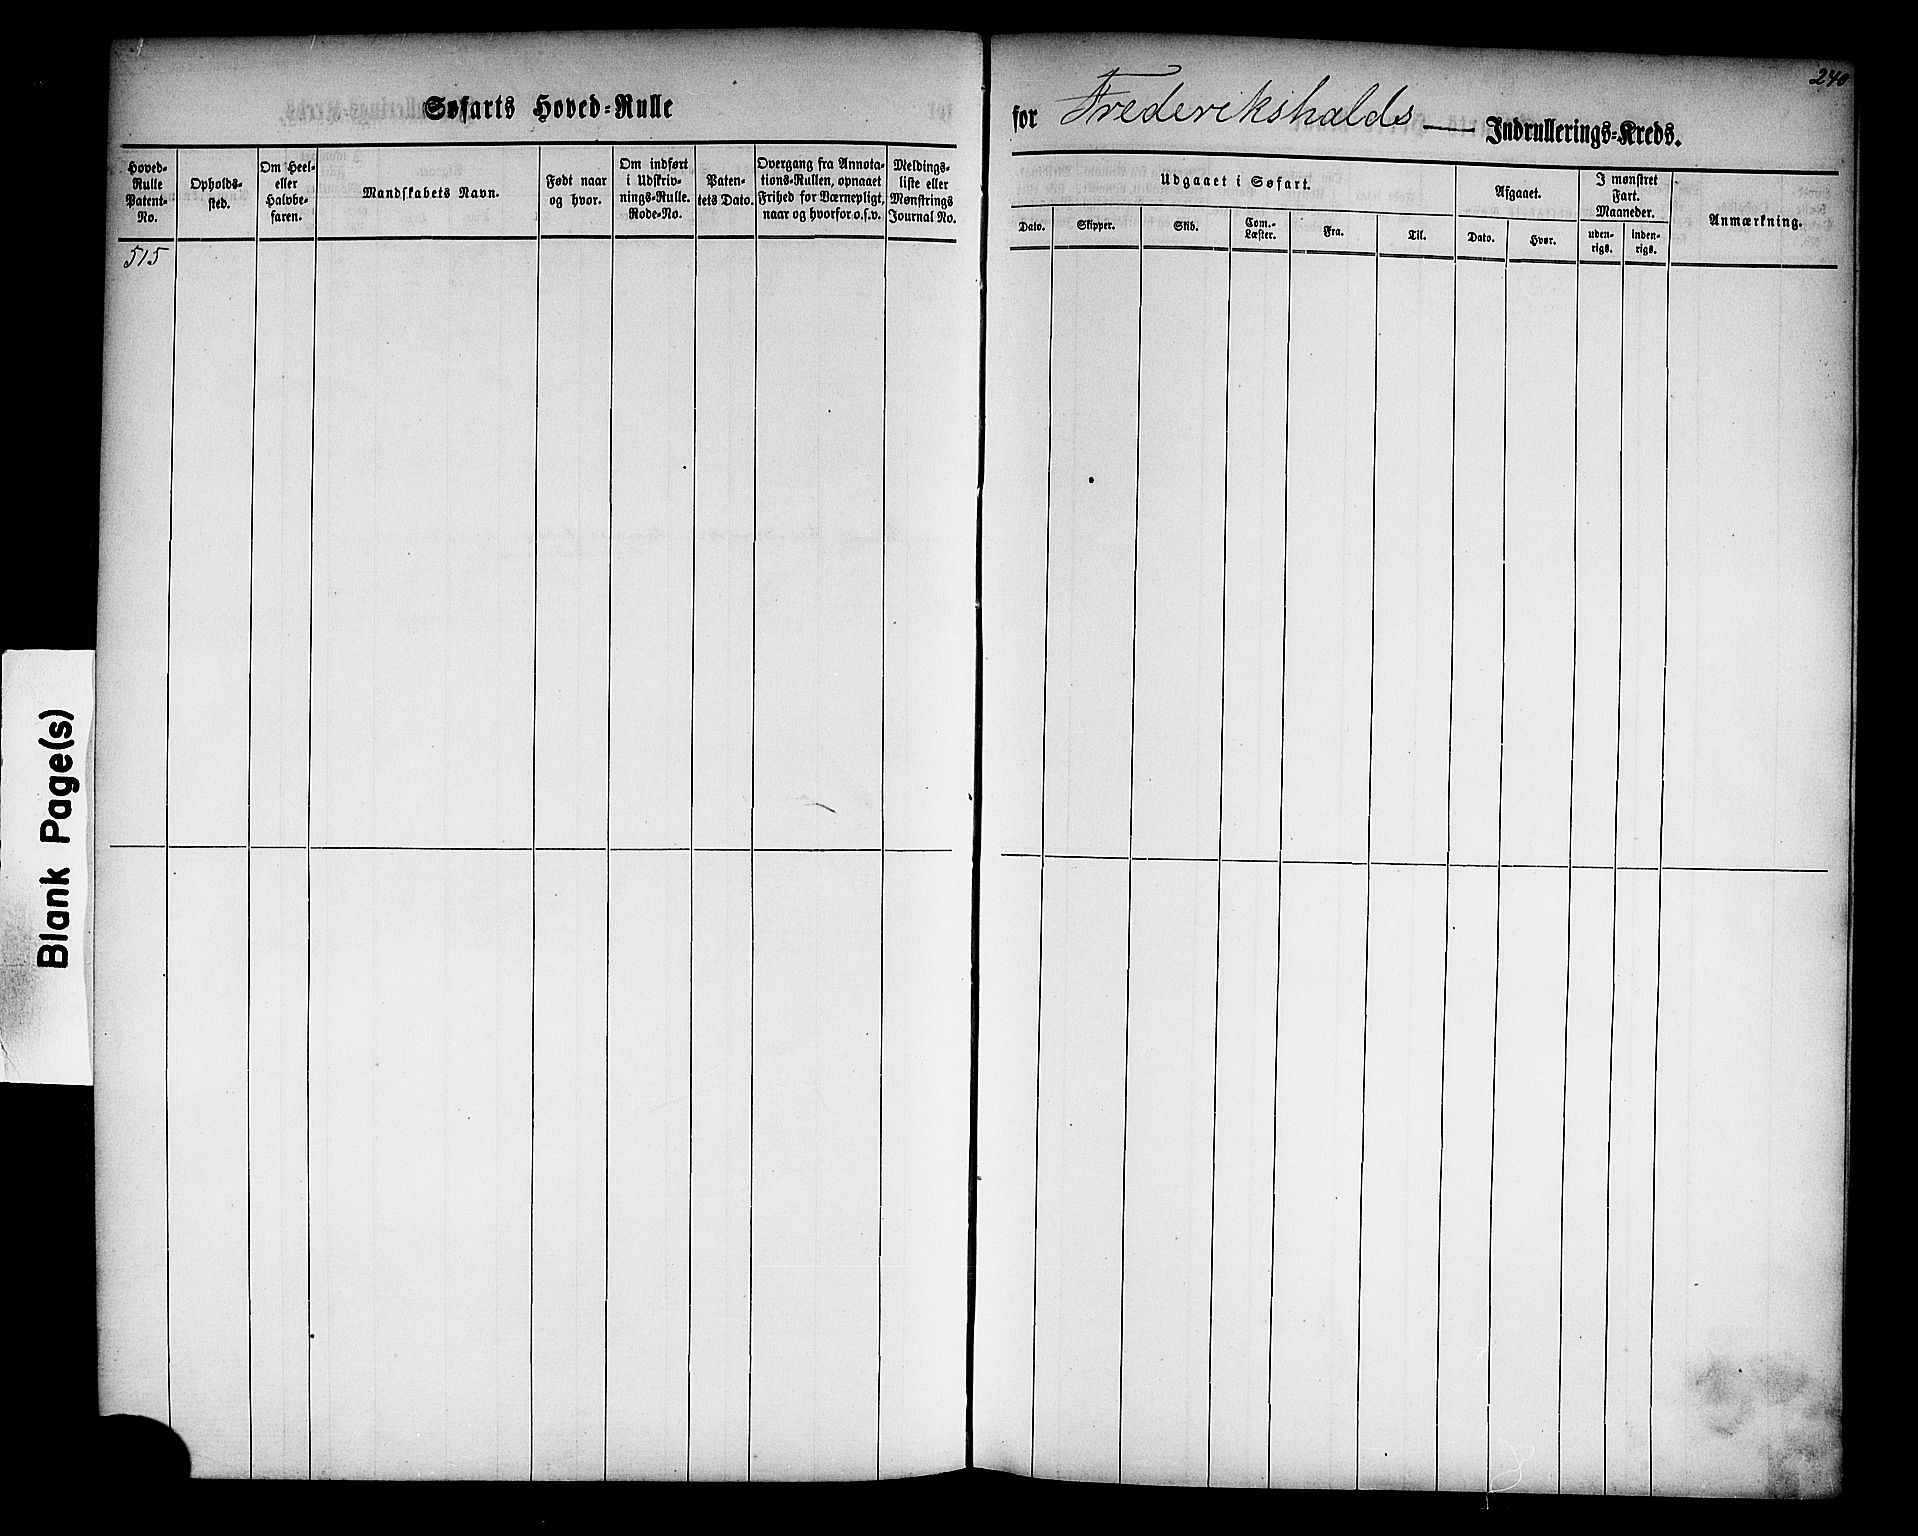 240
Søfarts Hoved-Rulle
for Frederikshalds Indrullerings-Kreds.
Hoved-
Rulle
Patent-
No.
Opholds-
sted.
Om Heel-
eller
Halvbe-
faren.
Mandskabets Navn.
Født naar
og hvor.
Om indført
i Udskriv-
nings-Rulle.
Rode-No.
Paten-
tets Dato.
Overgang fra Annota-
tions-Rullen, opnaaet
Frihed for Værnepligt,
naar og hvorfor o.s.v.
Meldings-
liste eller
Mønstrings
Journal No.
Udgaaet i Søfart.
Dato.
Skipper.
Skib.
Com.-
Læster.
Fra.
Til.
Afgaaet.
Dato.
Hvor.
I mønstret
Fart.
Maaneder.
uden-
rigs.
inden-
rigs.
Anmærkning.
515
Blank Page(s)